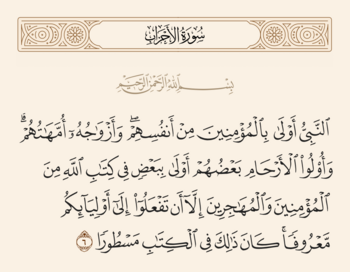 سُورَةُ الْأَحْزَابِ
بِسْمِ اللَّهِ الرَّحْمَٰنِ الرَّحِيمِ
النَّبِيُّ أَوْلَىٰ بِالْمُؤْمِنِينَ مِنْ أَنفُسِهِمْ ۖ وَأَزْوَاجُهُ أُمَّهَاتُهُمْ ۗ
وَأُولُوا الْأَرْحَامِ بَعْضُهُمْ أَوْلَىٰ بِبَعْضٍ فِي كِتَابِ اللَّهِ مِنَ
الْمُؤْمِنِينَ وَالْمُهَاجِرِينَ إِلَّا أَن تَفْعَلُوا إِلَىٰ أَوْلِيَائِكُم
مَّعْرُوفًا ۚ كَانَ ذَٰلِكَ فِي الْكِتَابِ مَسْطُورًا ٦